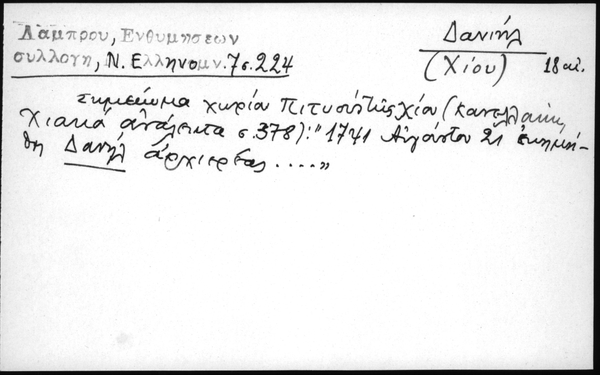 Λάμπρου, Ενθυμήσεων
συλλογη, Ν. Ελληνομν. 7 σ. 224
Δανιήλ
(Χίου) 18 αι.
Σημείωμα χωρίου Πιτυούς της Χίου (Κανελλάκη,
Χιακά ανάλεκτα σ. 378): "1741 Αυγούστου 21 εκοιμή-
θη Δανιήλ αρχιερέας ...."